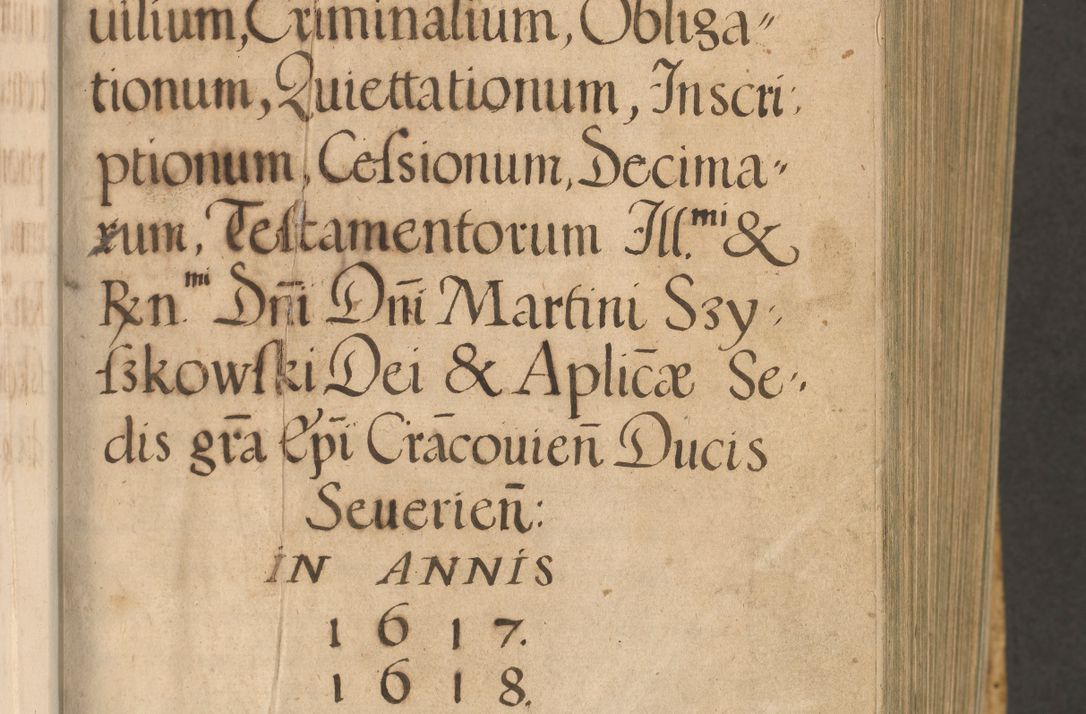 uilium, Criminalium, Obliga〃
tionum, Quiettationum, Inscri:
ptionum, Ceſsionum, Decima〃
rum, Teſtamentorum Ill.mi &
Rxn.mi Dn̄i Dn̄i Martini Szy:
ſzkowſki Dei & Aplic̄æ Se:
dis gr̄a Ep̄i Crācouien̄ Ducis
Seuerien̄:
IN ANNIS
1617.
1618.